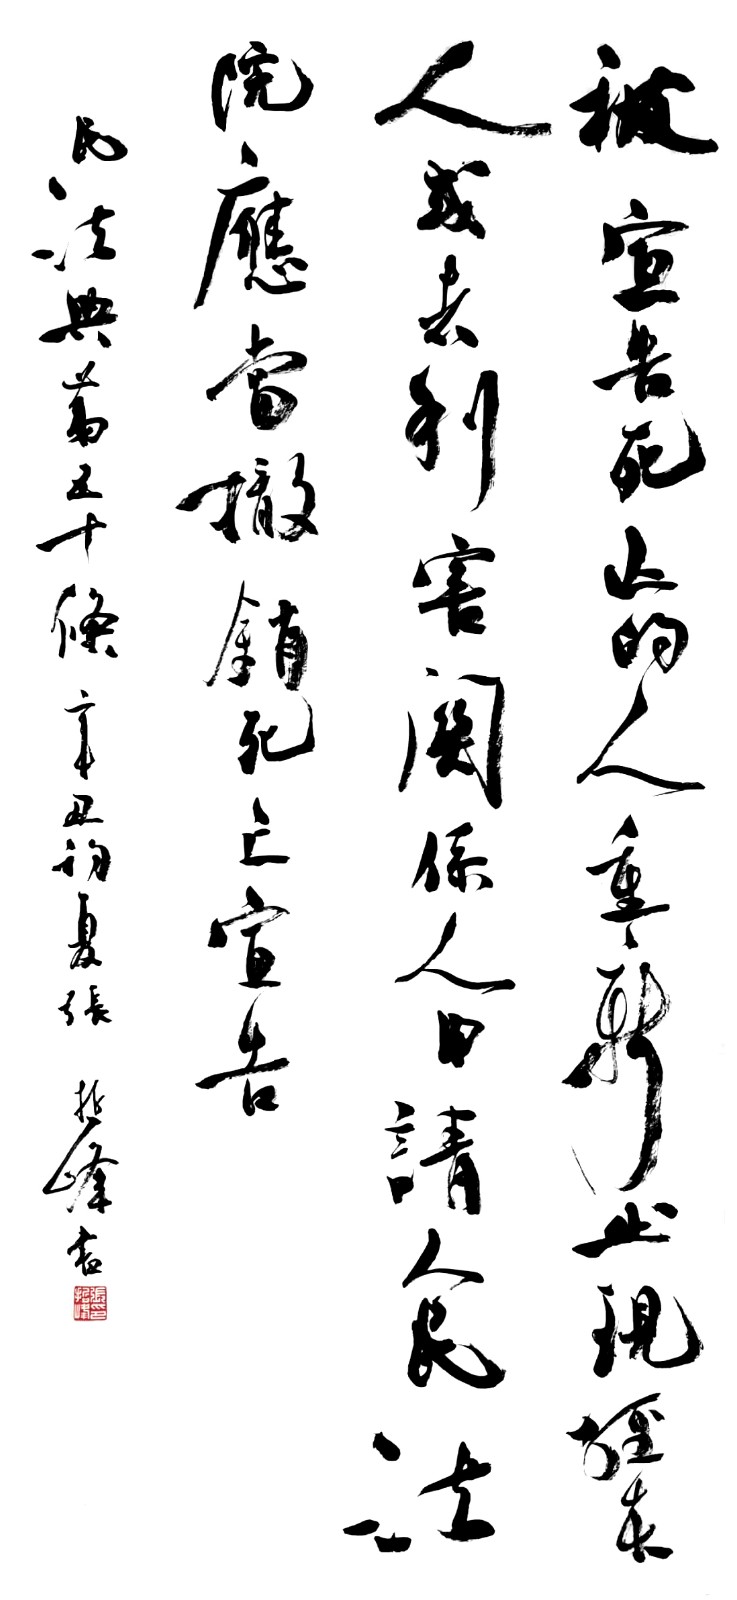 被宣告死亡的人重新出現經本
人或者利害關係人申請人民法
院應當撤銷死亡宣告
民法典第五十條辛丑初夏張峰書